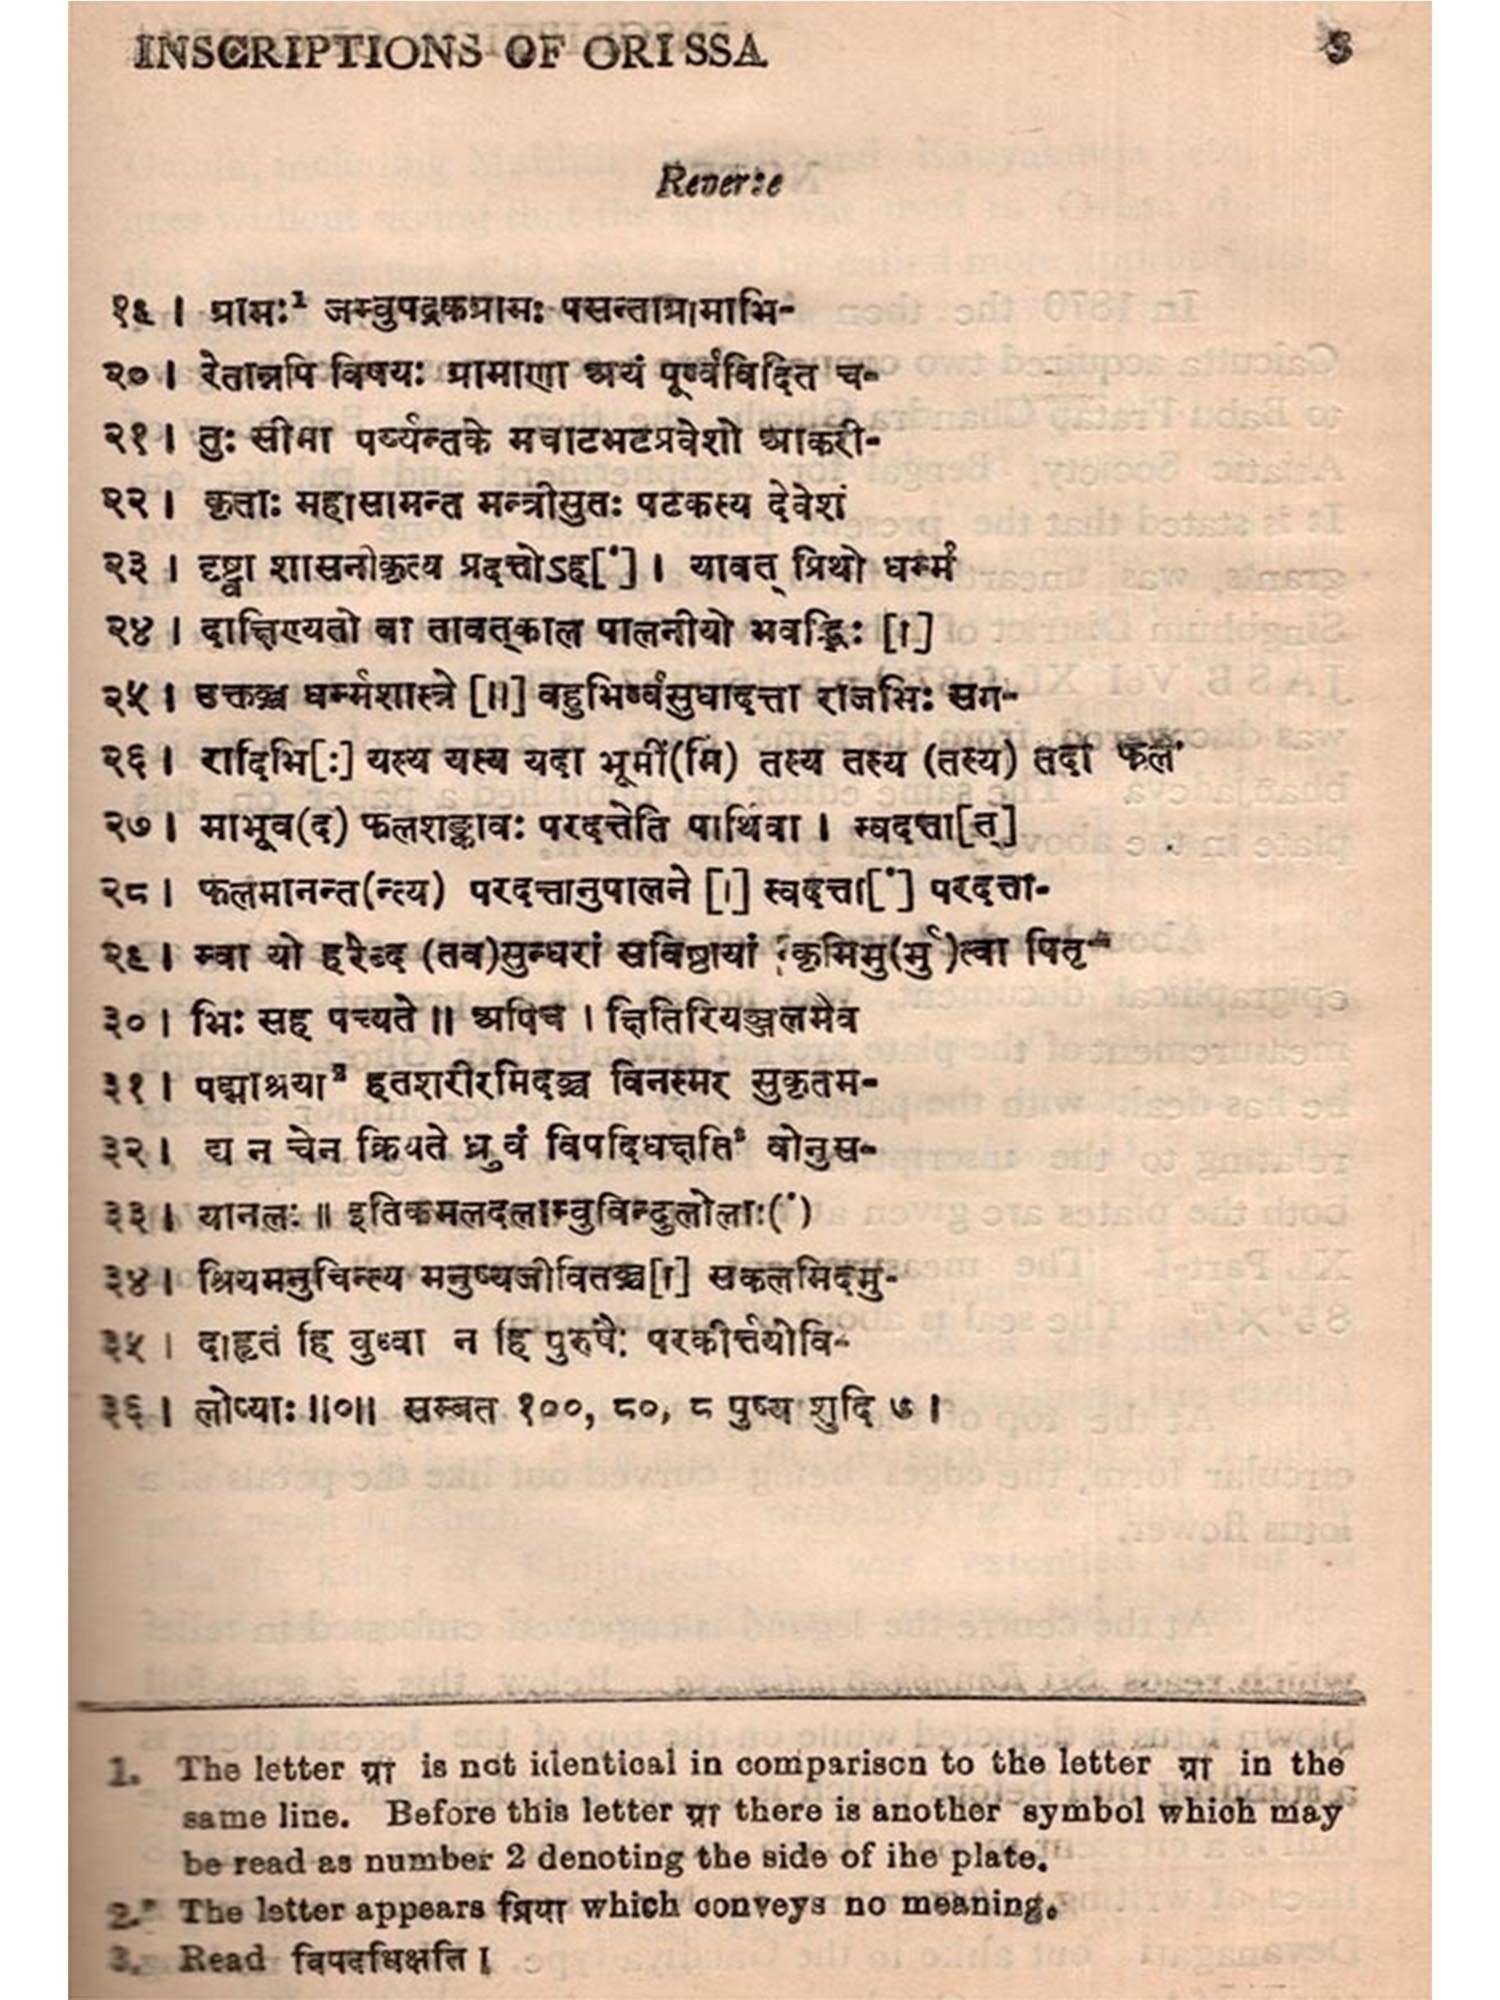 INSCRIPTIONS OF ORISSA 3
Reverse
१९ । ग्रामः¹ जम्वुपद्रकग्रामः पसन्ताग्रामाभि-
२० । रेतान्नपि विषयः ग्रामाणा अयं पूर्ण्वविदित च-
२१ । तुः सीमा पर्य्यन्तके मवाटभटप्रवेशो आकरी-
२२ । कृताः महासामन्त मन्त्रीसुतः पटकस्य देवेशं
२३ । दृष्ट्वा शासनीकृत्य प्रदत्तोऽह[ं] । यावत् प्रिथो धर्म्मं
२४ । दाक्षिण्यतो वा तावत्काल पालनीयो भवद्भिः [।]
२५ । उक्तञ्च धर्म्मशास्त्रे [॥] वहुभिर्ण्वसुधादत्ता राजभिः सग-
२६ । रादिभि[ः] यस्य यस्य यदा भूमीं(मिं) तस्य तस्य (तस्य) तदा फलं
२७ । माभूव(द) फलशङ्कावः परदत्तेति पार्थिवा । म्वदत्ता[त्]
२८ । फलमानन्त(न्त्य) परदत्तानुपालने [।] स्वदत्ता[ं] परदत्ता-
२९ । म्वा यो हरेद्द (तव)सुन्धरां सविष्ठायां कृमिमु(र्मु)त्वा पितृ-
३० । भिः सह पच्यते ॥ अपिच । क्षितिरियञ्जलमेव
३१ । पद्माश्रया² हतशरीरमिदञ्च विनस्मर सुकृतम-
३२ । द्य न चेन क्रियते ध्रुवं विपदिधक्षति³ वोनुस-
३३ । यानलः ॥ इतिकमलदलाम्वुविन्दुलोलाः(ं)
३४ । श्रियमनुचिन्त्य मनुष्यजीवितञ्च[।] सकलमिदमु-
३५ । दाहृतं हि वुध्वा न हि पुरुषैः परकीर्त्तयोवि-
३६ । लोप्याः ॥०॥ सम्बत १००, ८०, ८ पुष्य शुदि ७ ।
1. The letter ग्रा is not identical in comparison to the letter ग्रा in the
same line. Before this letter ग्रा there is another symbol which may
be read as number 2 denoting the side of ihe plate.
2. The letter appears प्रिया which conveys no meaning.
3. Read विपदधिक्षति ।